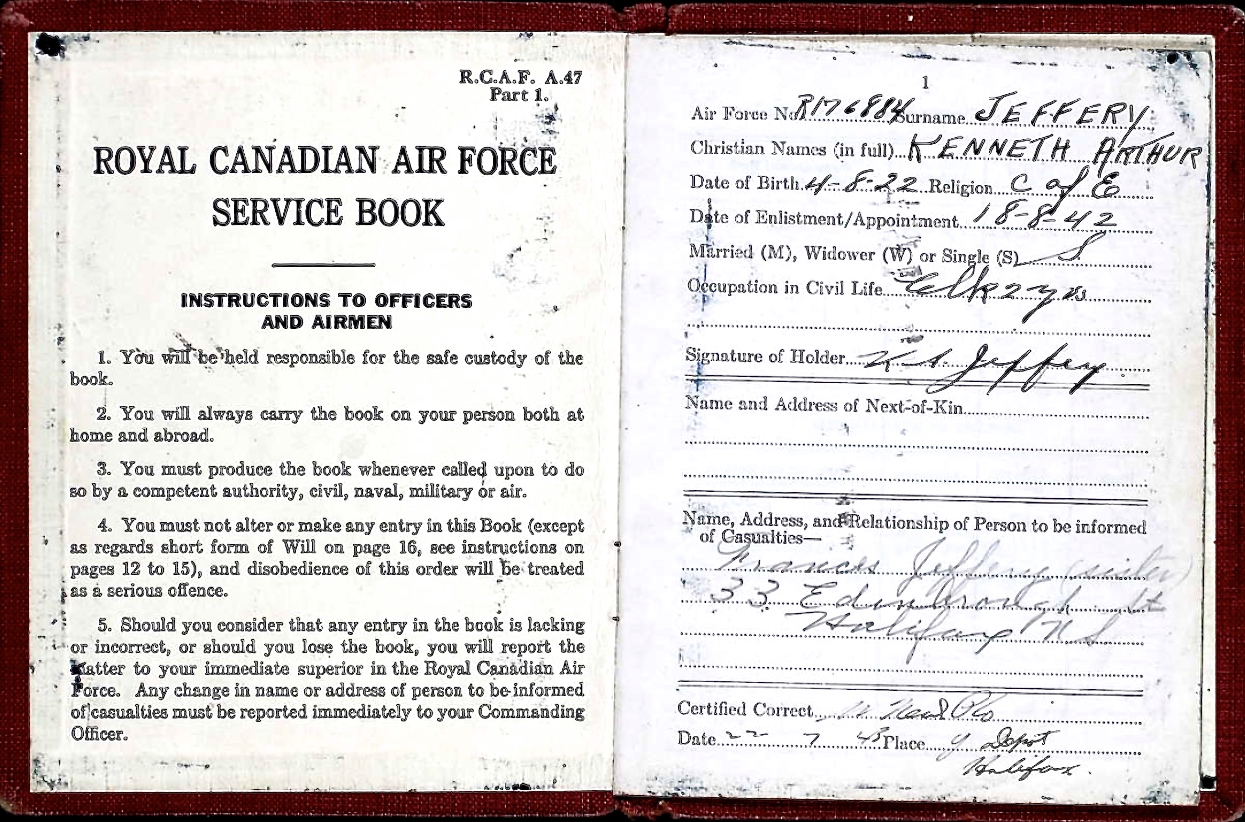 R.C.A.F. A.47
Part 1.
ROYAL CANADIAN AIR FORCE
SERVICE BOOK
INSTRUCTIONS TO OFFICERS
AND AIRMEN
1. You will be held responsible for the safe custody of the
book.
2. You will always carry the book on your person both at
home and abroad.
3. You must produce the book whenever called upon to do
so by a competent authority, civil, naval, military or air.
4. You must not alter or make any entry in this Book (except
as regards short form of Will on page 16, see instructions on
pages 12 to 15), and disobedience of this order will be treated
as a serious offence.
5. Should you consider that any entry in the book is lacking
or incorrect, or should you lose the book, you will report the
matter to your immediate superior in the Royal Canadian Air
Force. Any change in name or address of person to be informed
of casualties must be reported immediately to your Commanding
Officer.
1
Air Force No. R176884 Surname JEFFERY
Christian Names (in full) KENNETH ARTHUR
Date of Birth 4-8-22 Religion C of E
Date of Enlistment/Appointment 18-8-42
Married (M), Widower (W) or Single (S) S
Occupation in Civil Life Clk
Signature of Holder K A Jeffery
Name and Address of Next-of-Kin
Name, Address, and Relationship of Person to be informed
of Casualties—
Frances Jeffery (sister)
33 Edinborough St
Halifax N S
Certified Correct
Date 22 7 43 Place Y Depot
Halifax.